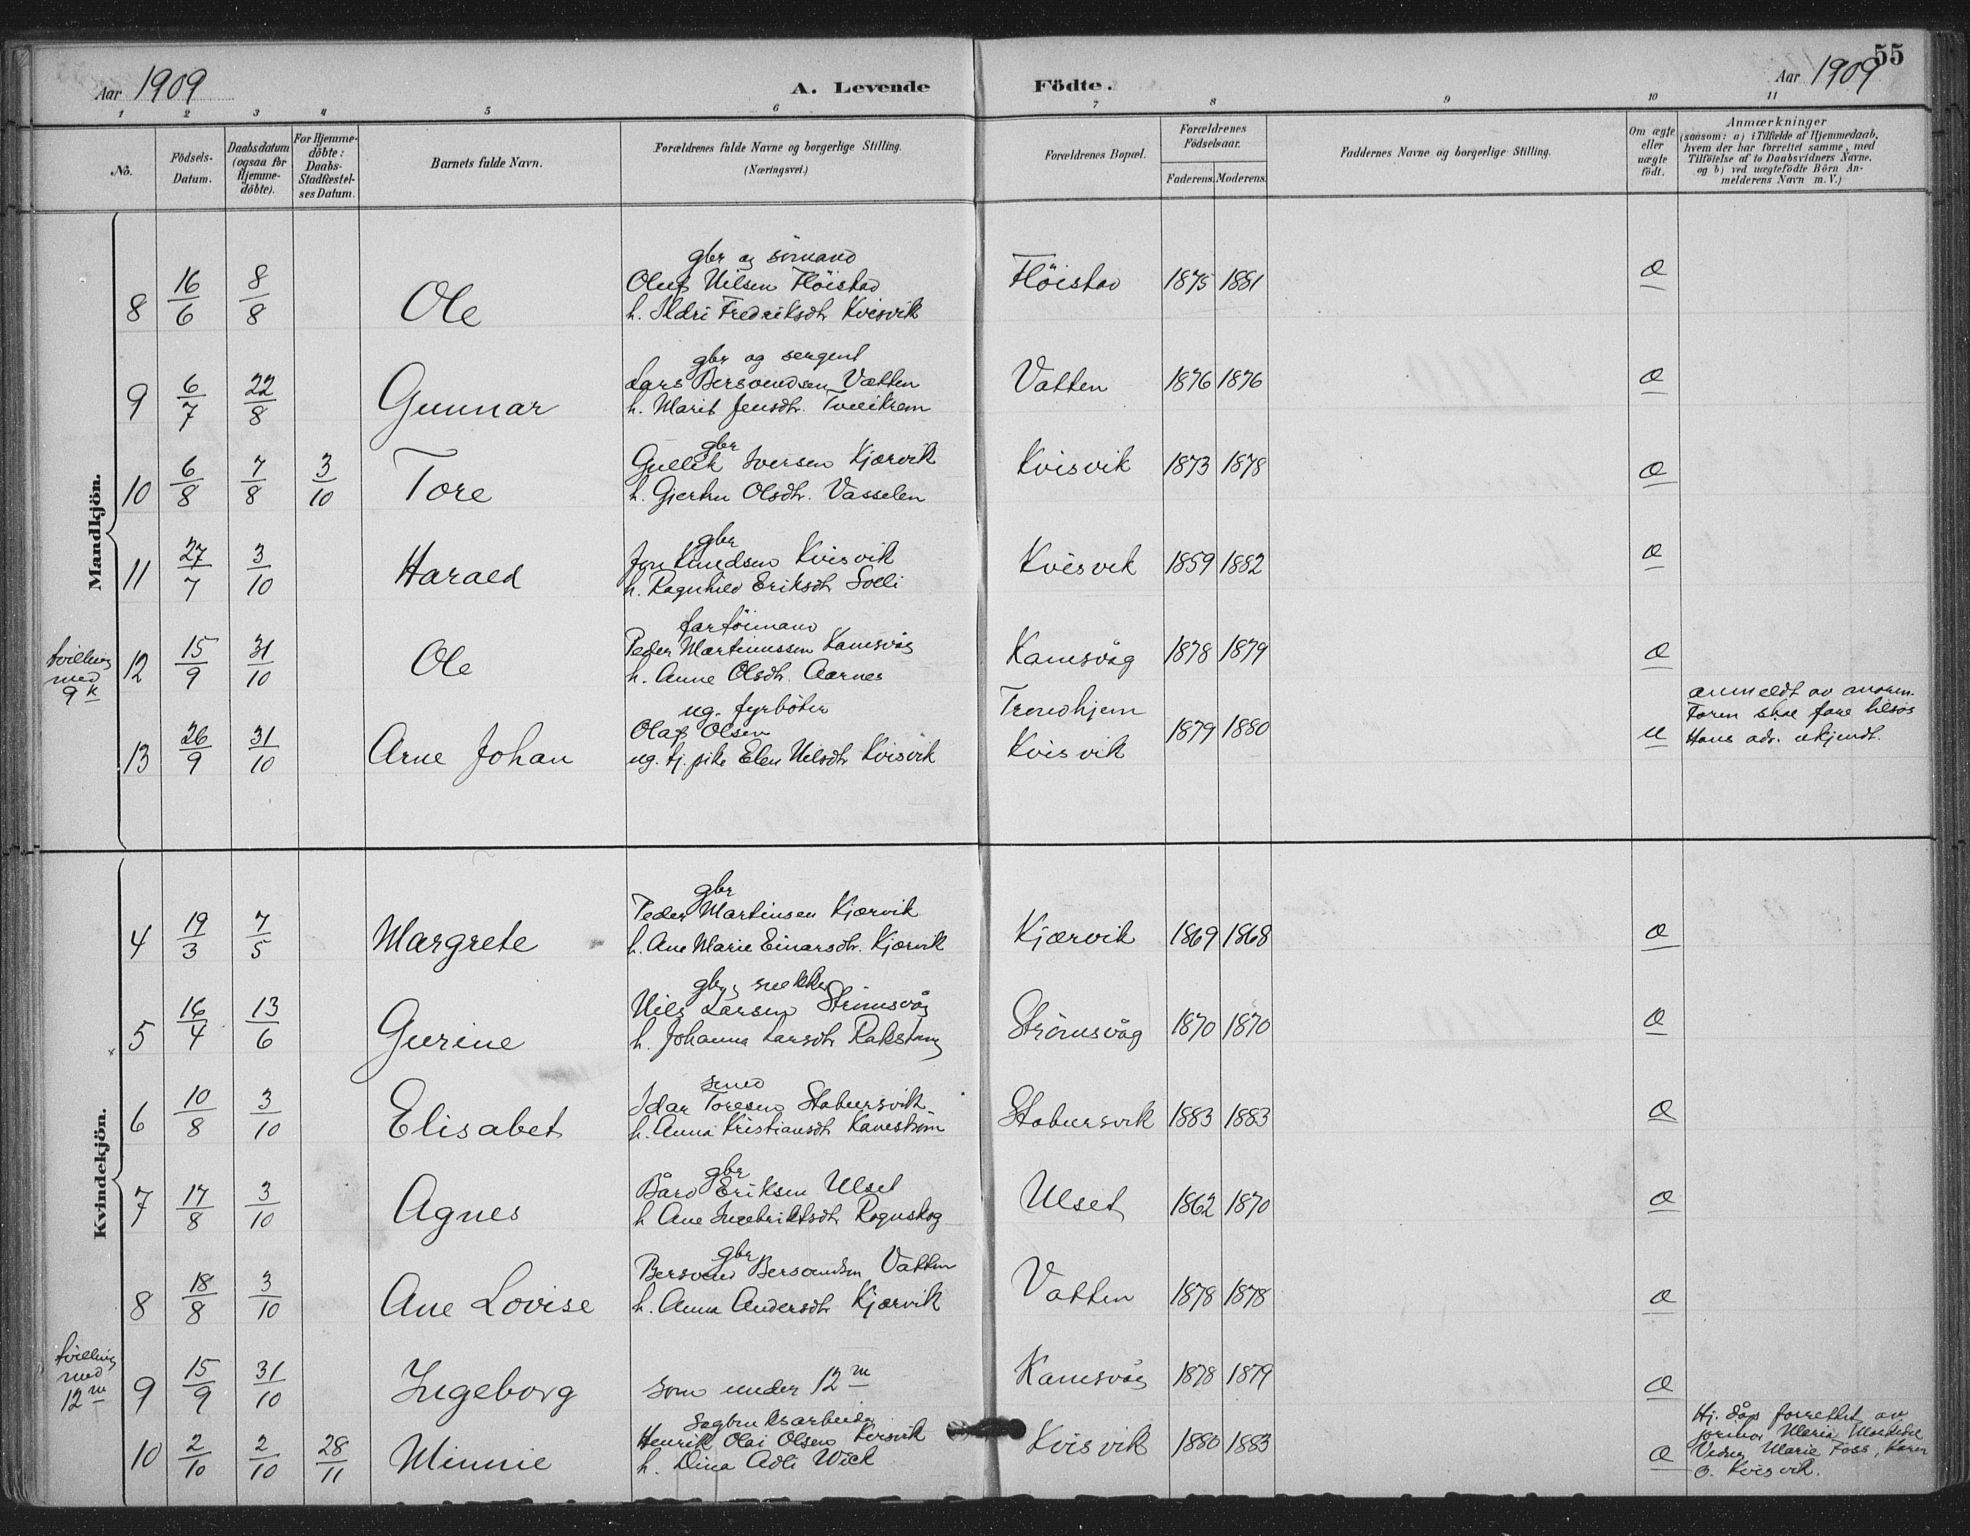 55
Aar 1909
A. Levende Födte.
Aar 1909
1 2 3 4 5 6 7 8 9 10 11
No.
Födsels-Datum.
Daabsdatum (ogsaa for Hjemme-döbte).
For Hjemme-döbte: Daabs-Stadfæstel-ses Datum.
Barnets fulde Navn.
Forældrenes fulde Navne og borgerlige Stilling.
(Næringsvei.)
Forældrenes Bopæl.
Forældrenes Födselsaar.
Faderens. Moderens.
Faddernes Navne og borgerlige Stilling.
Om ægte eller uægte födt.
Anmærkninger
(saasom: a) i Tilfælde af Hjemmedaab,
hvem der har forrettet samme, med
Tilföielse af to Daabsvidners Navne,
og b) ved uægtefödte Börn An-
melderens Navn m. V.)
Mandkjön.
gbr og sömand
Oluf Nilsen Flöistad
8 16/6 8/8 Ole h. Ildri Fredriksdtr Kvisvik Flöistad 1875 1881 Æ
gbr og sergent
Lars Bersvendsen Vatten
9 6/7 22/8 Gunnar h. Marit Jensdtr. Tveikrem Vatten 1876 1876 Æ
gbr
Gullik Iversen Kjørvik
10 6/8 7/8 3/10 Tore h. Gjertru Olsdtr. Vasselen Kvisvik 1873 1878 Æ
gbr
Jon Knudsen Kvisvik
11 27/7 3/10 Harald h. Ragnhild Eriksdtr Solli Kvisvik 1859 1882 Æ
fartöimand
Peder Martinussen Kamsvåg
tvilling med 9 k
12 15/9 31/10 Ole h. Anne Olsdtr. Aarnes Kamsvåg 1878 1879 Æ
ug. fyrböter
Olaf Olsen Trondhjem
13 26/9 31/10 Arne Johan ug. tj. pike Elen Nilsdtr Kvisvik Kvisvik 1879 1880 U
anmeldt av moren.
Faren skal fare tilsjøs
Hans adr. ukjendt.
Kvindekjön.
gbr
Peder Martinsen Kjørvik
4 19/3 7/5 Margrete h. Ane Marie Einarsdtr. Kjørvik Kjørvik 1869 1868 Æ
gbr, snekker
Nils Larsen Strömsvåg
5 16/4 13/6 Gurine h. Johanna Larsdtr Strømsvåg 1870 1870 Æ
smed
Idar Toresen Stabursvik
6 10/8 3/10 Elisabet h. Anna Kristiansdtr Kanestrøm Stabursvik 1883 1883 Æ
gbr
Bård Eriksen Ulset
7 17/8 3/10 Agnes h. Ane Ingebriktsdtr Rognskog Ulset 1862 1870 Æ
gbr
Bersvend Bersvendsen Vatten
8 18/8 3/10 Ane Lovise h. Anna Andersdtr Kjørvik Vatten 1878 1878 Æ
tvilling med 12 m
9 15/9 31/10 Ingeborg som under 12 m Kamsvåg 1878 1879 Æ
Sagbruksarbeider
Henrik Olai Olsen Kvisvik
10 2/10 2/10 28/11 Minnie h. Dina Adli Wiek Kvisvik 1880 1883 Æ
Hj. dåp forrettet av
jormor Maria
Vidner Marie Foss, Karen
O. Kvisvik.